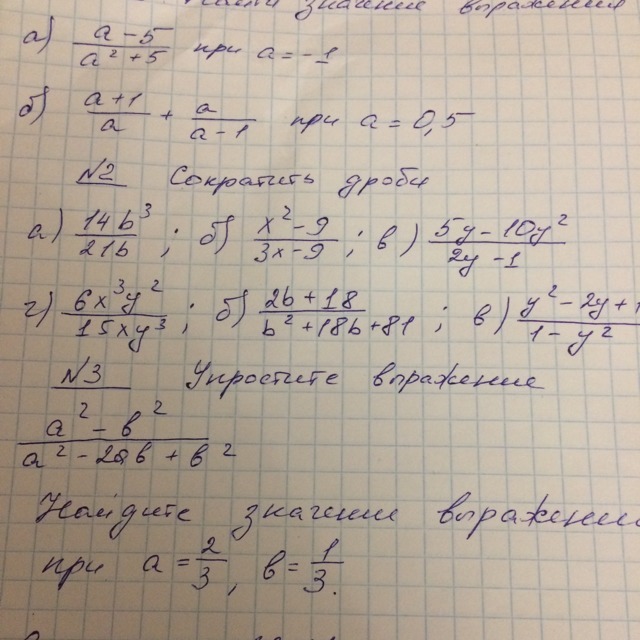 Найти значение выражения
а) (a - 5)/(a² + 5) при a = -1
б) (a + 1)/a + a/(a - 1) при a = 0,5
№2 Сократить дроби
а) 14b³/21b ; б) (x² - 9)/(3x - 9) ; в) (5y - 10y²)/(2y - 1)
г) 6x³y²/15xy³ ; б) (2b + 18)/(b² + 18b + 81) ; в) (y² - 2y + 1)/(1 - y²)
№3 Упростите выражение
(a² - b²)/(a² - 2ab + b²)
Найдите значение выражения
при a = 2/3, b = 1/3.